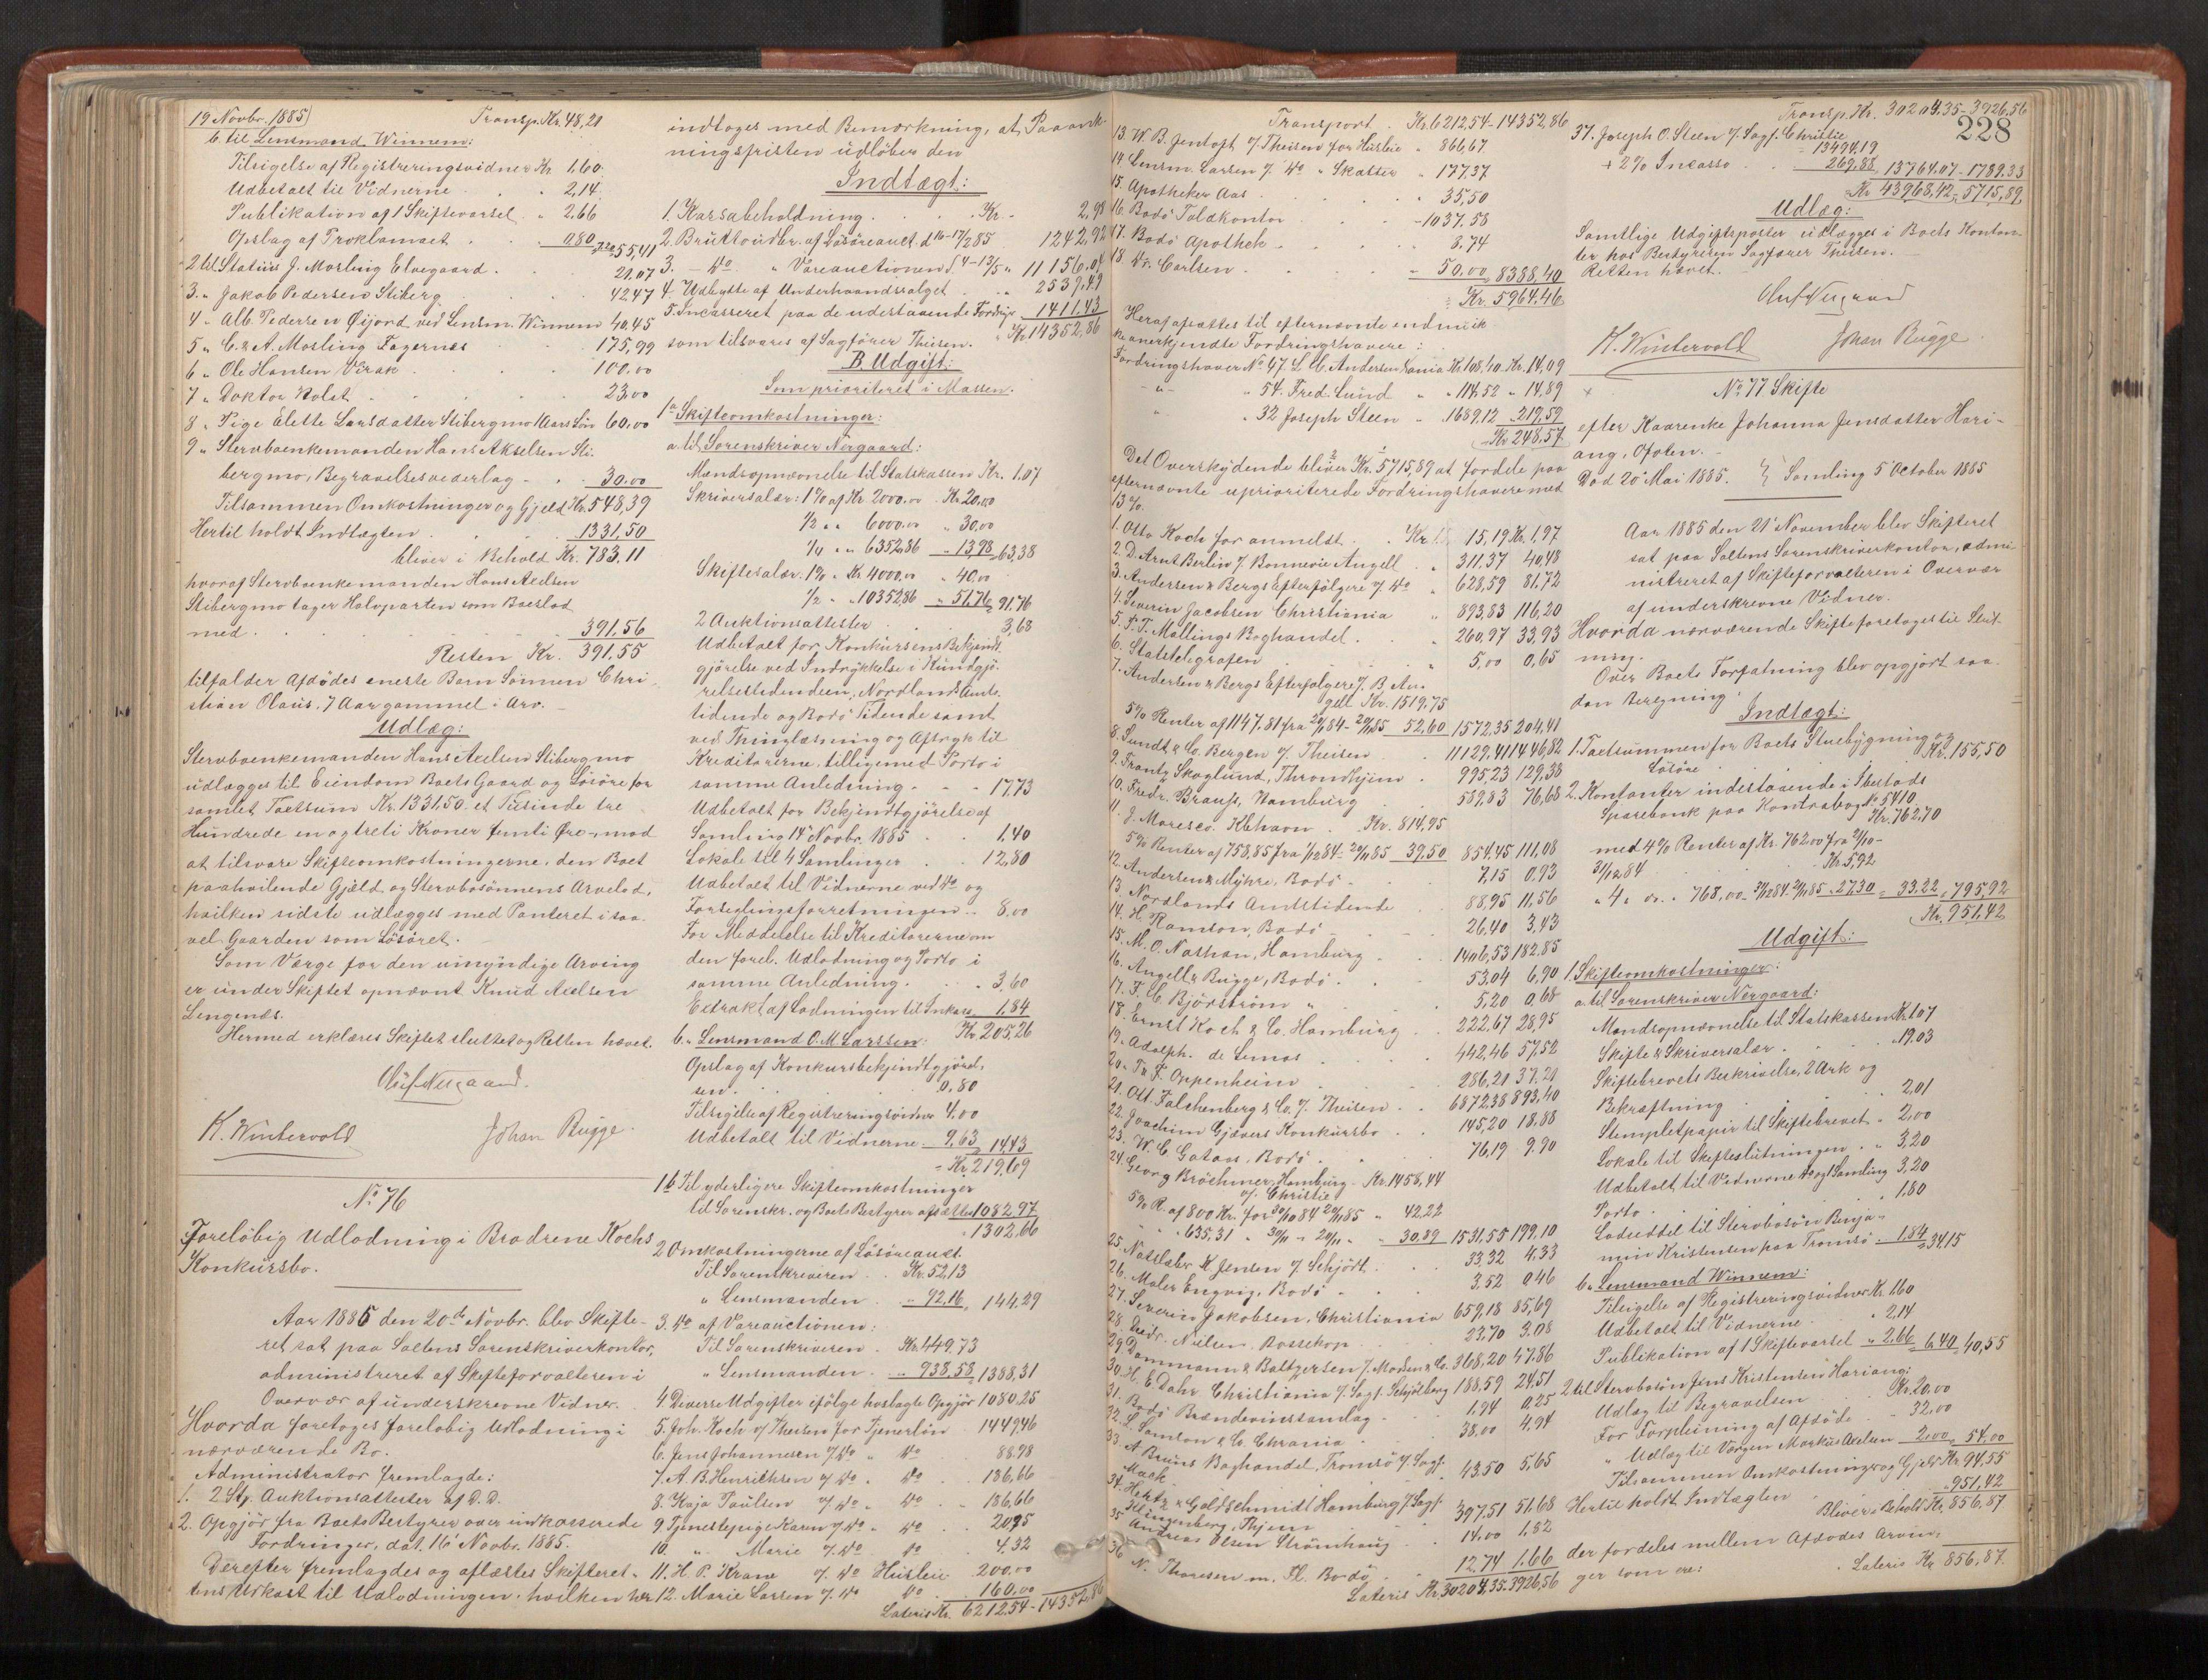 19 Novbr. 1885) Transp. Kr. 48,21
b. til Lensmand Winnem:
Tilsigelse af Registreringsvidner Kr. 1,60
Udbetalt til Vidnerne " 2,14
Publikation af 1 Skiftevarsel " 2,66
Opslag af Proklamaet 0,80 7,20 55,41
2 til Statius J. Mosling Elvegaard 21.07
3. " Jakob Pedersen Stiberg 42,47
4 " Alb. Pedersen Øijord ved Lensm. Winnem 40,45
5 " C. & A. Mosling Fagernæs 175,99
6 " Ole Hansen Virak 100,00
7 " Doktor Holst 23,00
8 " Pige Elette Larsdatter Stibergmo 1 Aars Løn 60,00
9 " Stervboenkemanden Hans Akselsen Sti-
bergmo, Begravelsesvederlag 30,00
Tilsammen Omkostninger og Gjeld Kr. 548,39
Hertil holdt Indtægten 1331,50
bliver i Behold Kr. 783,11
hvoraf Stervboenkemanden Hans Axelsen
Stibergmo tager Halvparten som Boeslod
med 391,56
Resten Kr. 391,55
tilfalder Afdødes eneste Barn Sønnen Chri-
stian Olaus, 7 Aar gammel i Arv.
Udlæg:
Stervboenkemanden Hans Axelsen Stibergmo
udlægges til Eiendom Boets Gaard og Løsøre for
samlet Taxtsum Kr. 1331,50. et Tusinde tre
Hundrede en og treti Kroner femti Øre, mod
at tilsvare Skifteomkostningerne, den Boet
paahvilende Gjæld og Stervbosønnens Arvelod,
hvilken sidste udlægges med Panteret i saa-
vel Gaarden som Løsøret.
Som Værge for den umyndige Arving
er under Skiftet opnævnt Knud Axelsen
Lengenæs.
Hermed erklæres Skiftet sluttet og Retten hævet.
Oluf Nergaard.
K. Wintervold Johan Bugge.
No 76
Foreløbig Udlodning i Brødrene Kochs
Konkursbo.
Aar 1885 den 20de Novbr. blev Skifte-
ret sat paa Saltens Sorenskriverkontor,
administreret af Skifteforvalteren i
Overvær af underskrevne Vidner.
Hvorda foretoges foreløbig Udlodning i
nærværende Bo.
Administrator fremlagde:
1. 2 Stk. Auktionsattester af D. D.
2. Opgjør fra Boets Bestyrer over indkasserede
Fordringer, dat. 16 Novbr. 1885.
Derefter fremlagdes og aflæstes Skifteret-
tens Udkast til Udlodningen, hvilken her
indtages med Bemærkning, at Paaank-
ningsfristen udløber den
Indtægt:
1. Kassabeholdning Kr. 2,98
2. Bruttoudbr. af Løsøreauct. d. 16-17/2 85 1242,92
3. " do " Vareauctionen d. 4-13/5 " 11156,04
4. Udbytte af Underhaandssalget " 2539,49
5. Incasseret paa de udestaaende Fordrgr 1411,43
som tilsvares af Sagfører Theisen. Kr. 14352,86
B. Udgift:
Som prioriteret i Massen.
1a Skifteomkostninger:
a. til Sorenskriver Nergaard:
Mandsopnævnelse til Statskassen Kr. 1,07
Skriversalær: 1% af Kr 2000,00 Kr. 20,00
1/2 " " 6000,00 " 30,00
1/4 " " 6352,86 " 13,98 63,38
Skiftesalær. 1% " Kr. 4000,00 " 40,00
1/2 " " 10352,86 " 51,76 91,76
2 Auktionsattester 3,68
Udbetalt for Konkursens Bekjendt-
gjørelse ved Indrykkelse i Kundgjø-
relsestidenden, Nordlands Amts-
tidende og Bodø Tidende samt
ved Thinglæsning og Aftryk til
Kreditorerne, tilligemed Porto i
samme Anledning 17,73
Udbetalt for Bekjendtgjørelse af
Samling 14 Novbr. 1885 1,40
Lokale til 4 Samlinger 12,80
Udbetalt til Vidnerne ved do og
Forseglingsforretningen 8,00
For Meddelelse til Kreditorerne om
den forel. Udlodning og Porto i
samme Anledning 3,60
Extrakt af Lodningen til Inkass. 1,84
Kr. 205,26
b. " Lensmand O. M Larssen:
Opslag af Konkursbekjendtgjørel-
sen 0,80
Tilsigelse af Registreringsvidner 4,00
Udbetalt til Vidnerne 9,63 14,43
Kr. 219,69
1b Til yderligere Skifteomkostninger
til Sorenskr. og Boets Bestyrer afsættes 1082,97
1302,66
2 Omkostningerne af Løsøreauct.
Til Sorenskriveren Kr. 52,13
" Lensmanden " 92,16 144,29
3. do af Vareauctionen:
Til Sorenskriveren Kr. 449,73
" Lensmanden " 938,58 1388,31
4 Diverse Udgifter ifølge hoslagte Opgjør 1080,25
5. Joh. Koch v/ Theisen for Tjenerløn 1449,46
6. Jens Johannesen v/ do " do 88,98
7. A. B. Henrichsen v/ do " do 186,66
8. Kaja Paulsen v/ do " do 186,66
9 Tjenestepige Karen v/ do " do 20,95
10. " Marie v/ do do 4,32
11. H. P. Krane v/ do Husleie 200,00
12. Marie Larsen v/ do do 160,00
Lateris Kr. 6212,54 - 14352,86
Transport Kr. 6212,54 - 14352,86
13. W. B. Jentoft v/ Theisen for Husleie " 866,67
14 Lensm. Larsen v/ do " Skatter " 177,37
15. Apotheker Aas 35,50
16. Bodø Toldkontor 1037,58
17. Bodø Apothek 8,74
18. Dr. Carlsen 50,00 8388,40
Kr. 5964,46
Heraf afsættes til efternævnte endnu ik-
ke anerkjendte Fordringshavere:
Fordringshaver No 47 L. C. Andersen Xania Kr. 108,40 Kr. 14,09
" " 54. Fred. Lund " 114,52 " 14,89
" " 32 Joseph Steen " 1689,12 219,59
Kr. 248,57
Det Overskydende bliver Kr. 5715,89 at fordele paa
efternævnte uprioriterede Fordringshavere med
13%.
1. Otto Koch for anmeldt Kr. 15,19 Kr. 1,97
2. D. Arnt Berlin v/ Bonnevie Angell 311,37 40,48
3. Andersen & Bergs Efterfølgere v/ do 628,59 81,72
4. Severin Jacobsen Christiania 893,83 116,20
5. P. T. Mallings Boghandel 260,97 33,93
6. Statstelegrafen 5,00 0,65
7. Andersen & Bergs Efterfølgere v/ B. An-
gell Kr. 1519,75
5% Renter af 1147,81 fra 20/12 84 - 20/11 85 52,60 1572,35 204,41
8. Sundt & Co. Bergen v/ Theisen 11129,41 1446,82
9. Frantz Skoglund, Throndhjem 995,23 129,38
10. Fredr. Brauss, Hamburg 589,83 76,68
11. J. Maresco. Kbhavn. Kr. 814,95
5% Renter af 758,85 fra 1/12 84 - 20/11 85 39,50 854,45 111,08
12. Andersen & Myhre, Bodø 7,15 0,93
13. Nordlands Amtstidende 88,95 11,56
14. H. Ramson, Bodø 26,40 3,43
15. M. O. Nathan, Hamburg 1406,53 182,85
16. Angell & Bugge, Bodø 53,04 6,90
17. F. C. Bjørstrøm " 5,20 0,68
18. Ernst Koch & Co. Hamburg 222,67 28,95
19. Adolph. de Lemos 442,46 57,52
20. Th. F. Oppenheim 286,21 37,21
21. Ott. Falchenberg & Co. v/ Theisen 6872,38 893,40
22. Joachim Gjævers Konkursbo 145,20 18,88
23. W. C. Gotaas, Bodø 76,19 9,90
24. Georg Bröchner, Hamburg Kr. 1458,44
v/ Christie
5% R. af 800 Kr. for 30/10 84 20/11 85 " 42,22
" " 635,31 " 30/11 " 20/11 " " 30,89 1531,55 199,10
25. Notslaber K. Jensen v/ Schjødt 33,32 4,33
26. Maler Engvig, Bodø 3,52 0,46
27. Severin Jakobsen, Christiania 659,18 85,69
28. Fredr. Nielsen, Bossekop 23,70 3,08
29. Dammann & Baltzersen v/ Madsen & Co. 368,20 47,86
30. H. E. Dahr Christiania v/ Sagf. Schjølberg 188,59 24,51
31. Bodø Brændevinssamlag 1,94 0,25
32. L. Samson & Co. Chrania 38,00 4,94
33. A Bruns Boghandel, Tromsø v/ Sagf.
Mack 43,50 5,65
34. Hertz & Goldschmidt Hamburg v/ Sagf.
Klingenberg, Thjem 397,51 51,68
35 Andreas Olsen Strømhaug 14,00 1,82
36 N. Thoresen m. Fl. Bodø 12,74 1,66
Lateris Kr. 30204,35. 3926,56
Transp. Kr. 30204,35 - 3926,56
228
37. Joseph O. Steen v/ Sagf. Christie
13494,19
+ 2% Incasso 269,88 13764,07 - 1789,33
Kr. 43968,42 - 5715,89
Udlæg:
Samtlige Udgiftsposter udlægges i Boets Kontan-
ter hos Bestyreren Sagfører Theisen.
Retten hævet.
Oluf Nergaard
K. Wintervold Johan Bugge.
No 77 Skifte
efter Kaarenke Johanna Jensdatter Hari-
ang, Ofoten.
Død 20 Mai 1885. } Samling 5 October 1885
Aar 1885 den 21 November blev Skifteret
sat paa Saltens Sorenskriverkontor, admi-
nistreret af Skifteforvalteren i Overvær
af underskrevne Vidner.
Hvorda nærværende Skifte foretoges til Slut-
ning.
Over Boets Forfatning blev opgjørt saa-
dan Beregning:
Indtægt:
1. Taxtsummen for Boets Stuebygning og
Løsøre Kr. 155,50
2. Kontanter indestaaende i Ibestads
Sparebank paa Kontrabog No 5410
Kr. 762,70
med 4% Renter af Kr. 762,00 fra 21/10 -
31/12 84 Kr. 5,92
" 4 " " " 768,00 31/12 84 21/11 85 27,30 33,22 795,92
Kr. 951,42
Udgift:
1. Skifteomkostninger:
a. til Sorenskriver Nergaard:
Mandsopnævnelse til Statskassen Kr. 1,07
Skifte & Skriversalær 19,03
Skiftebrevets Beskrivelse, 2 Ark og
Bekræftning 2,01
Stempletpapir til Skiftebrevet 2,00
Lokale til Skifteslutningen " 3,20
Udbetalt til Vidnerne do og 1 Samling 3,20
Porto 1,80
Lodseddel til Stervbosøn Benja-
min Kristensen paa Tromsø 1,84 34,15
b. " Lensmand Winnem:
Tilsigelse af Registreringsvidner Kr. 1,60
Udbetalt til Vidnerne " 2,14
Publikation af 1 Skiftevarsel " 2,66 6,40 40,55
2 til Stervbosøn Jens Kristensen Hariang:
Udlæg til Begravelsen Kr. 20,00
For Forpleining af Afdøde " 32,00
" Udlæg til Værgen Markus Axelsen 2,00 54,00
Tilsammen Omkostninger og Gjeld Kr. 94,55
Hertil holdt Indtægten 951,42
Bliver i Behold Kr. 856,87
der fordeles mellem Afdødes Arvin-
ger som ere:
Lateris Kr. 856,87.